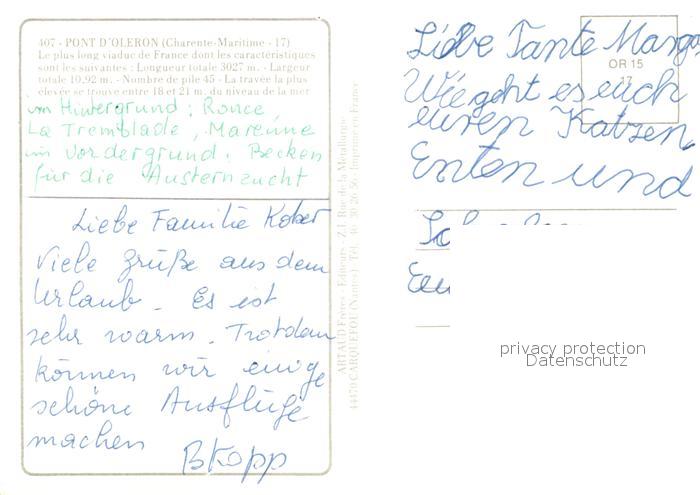 407 - PONT D'OLERON (Charente-Maritime - 17)
Le plus long viaduc de France dont les caractéristiques
sont les suivantes : Longueur totale 3027 m. - Largeur
totale 10,92 m. - Nombre de pile 45 - La travée la plus
élevée se trouve entre 18 et 21 m. du niveau de la mer
im Hintergrund : Ronce,
La Tremblade, Marenne
im Vordergrund. Becken
für die Austernzucht
Liebe Familie Kober
Viele Grüße aus dem
Urlaub. Es ist
sehr warm. Trotzdem
können wir einige
schöne Ausflüge
machen
B Kopp
ARTAUD Frères - Editeurs - Z.I. Rue de la Métallurgie
44470 CARQUEFOU (Nantes) Tél. 40 30 26 56 Imprimé en France
OR 15
17
Liebe Tante Margo
Wie geht es euch
euren Katzen
Enten und
privacy protection
Datenschutz